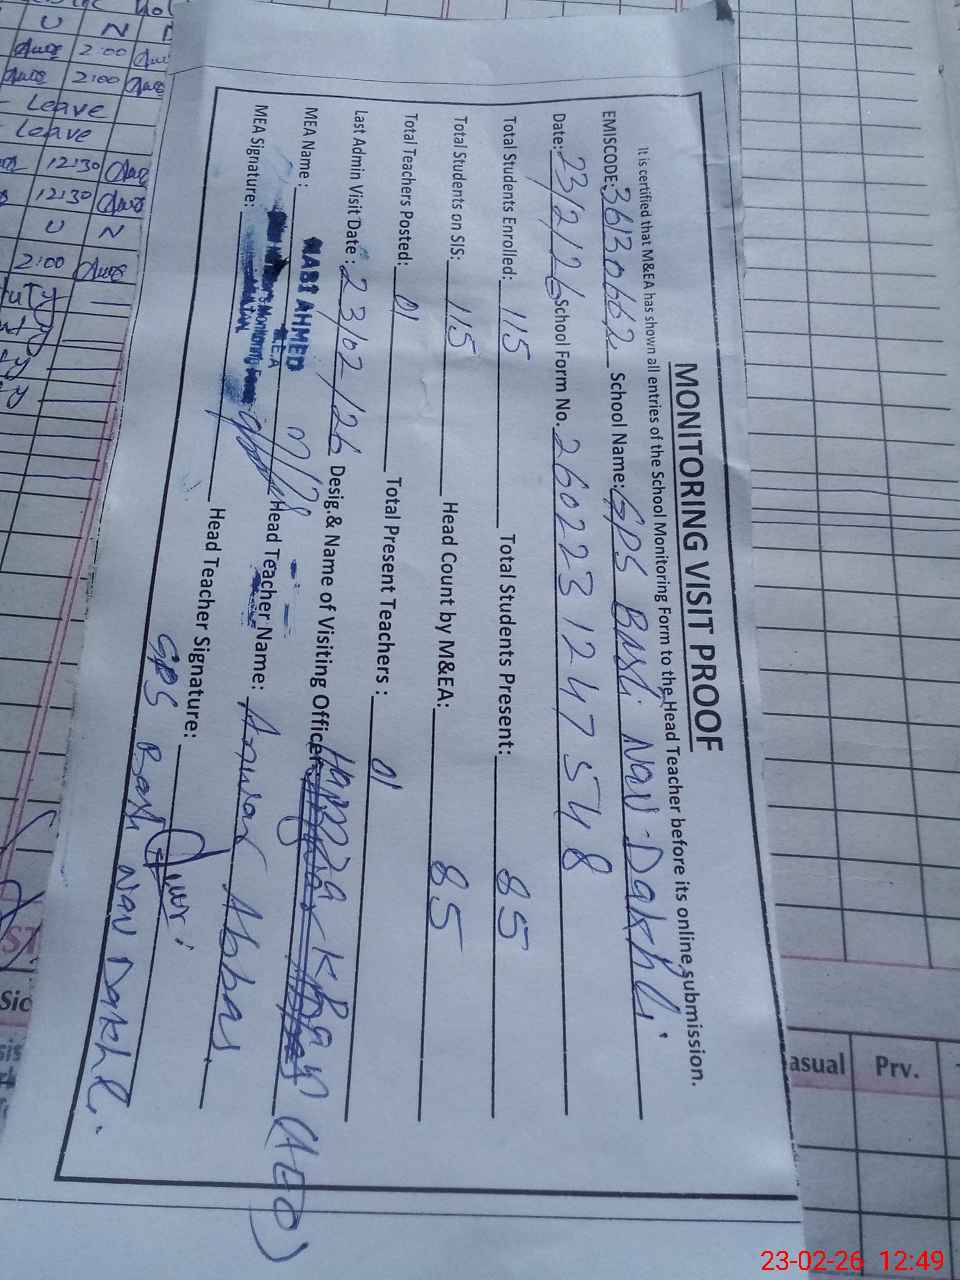 MONITORING VISIT PROOF
It is certified that M&EA has shown all entries of the School Monitoring Form to the Head Teacher before its online submission.
EMISCODE: 36130662 School Name: GPS Basti Nau - Dakhli
Date: 23/2/26 School Form No. 2602231247548
Total Students Enrolled: 115 Total Students Present: 85
Total Students on SIS: 115 Head Count by M&EA: 85
Total Teachers Posted: 01 Total Present Teachers : 01
Last Admin Visit Date : 23/02/26 Desig.& Name of Visiting Officer: Hamza Khan (AEO)
MEA Name : NABI AHMED Head Teacher Name: Anwar Abbas
M.E.A
MEA Signature: Head Teacher Signature:
GPS Basti Nau Dakhli
U N
2:00
2:00
Leave
Leave
12:30
12:30
U N
2:00
asual Prv.
Sic
23-02-26 12:49